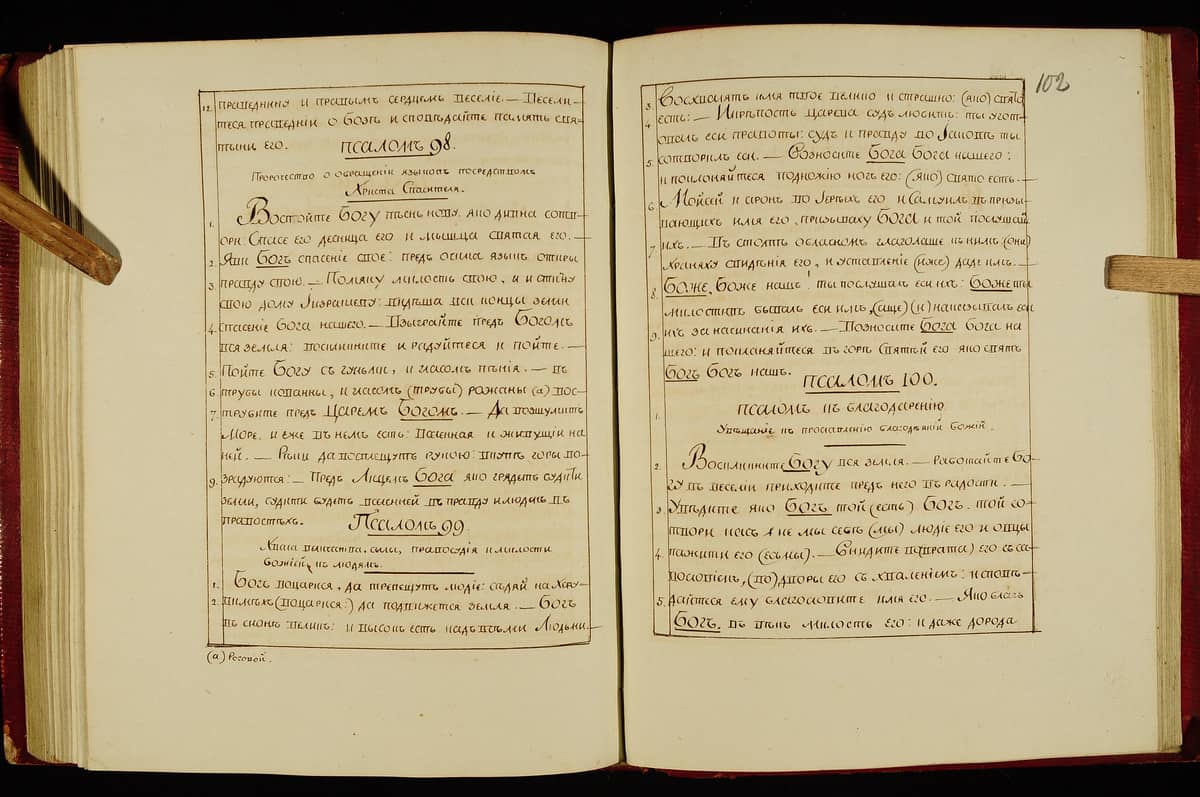 12. праведнику и правымъ сердцемъ веселіе. — Весели-
теся праведніи о Бозѣ и сповѣдайте память свя-
тыни его.
ПСАЛОМЪ 98.
Пророчество о обращеніи языковъ посредствомъ
Христа Спасителя.
1. Воспойте БОГУ пѣснь нову, яко дивна сотв-
ори: Спасе его десница его и мышца святая его. —
2. Яви БОГЪ спасеніе свое: предъ очима языкъ откры
3. правду свою. — Помяну милость свою, и истину
свою дому Ізраилеву: видѣша вси концы земли
4. спасеніе Бога нашего. — Взыграйте предъ БОГОМЪ
вся земля: воскликните и радуйтеся и пойте. —
5. Пойте БОГУ съ гусльми, и гласомъ пѣнія. — въ
6. трубы кованны, и гласомъ (трубы) рожаны (а) вос-
7. трубите предъ ЦАРЕМЪ БОГОМЪ. — Да возшумитъ
Море, и еже въ немъ есть: Вселенная и живущіи на
ней. — Реки да восплещутъ рукою: вкупѣ горы во-
9. зрадуются: — Предъ Лицемъ БОГА яко грядетъ судити
земли, судити будетъ вселенней въ правду и людмъ въ
правостѣхъ.
ПСАЛОМЪ 99.
Хвала величества, силы, правосудія и милости
божіей къ людямъ.
1. БОГЪ воцарися, да трепещутъ людіе: сѣдяй на Херу-
2. вимѣхъ (воцарися:) да подвижется земля. — БОГЪ
въ сіонѣ великъ: и высокъ есть надъ всѣми Людьми. —
(а) Роговой.
102
3. Восхвалятъ имя твое велико и страшно: (яко) свято
4. есть: — И крѣпость Царева судъ любитъ: ты угот-
овалъ еси правоты: судъ и правду во Іаковѣ ты
5. сотворилъ еси. — Возносите БОГА Бога нашего:
и покланяйтеся подножію ногъ его: (яко) свято есть. —
6. Мойсей и аронъ во Іереѣхъ его и Самуилъ въ призы-
вающихъ имя его, призываху БОГА и той послушаше
7. ихъ. — Въ столпѣ облачномъ глаголаше къ нимъ (они)
храняху свидѣнія его, и уставленіе (иже) даде имъ. —
8. БОЖЕ, Боже нашъ! ты послушалъ еси ихъ: БОЖЕ ты
милостивъ бывалъ еси имъ, (аще) (и) наказывалъ еси
9. ихъ за начинанія ихъ. — Возносите БОГА бога на-
шего: и покланяйтеся въ горѣ Святѣй его яко святъ
БОГЪ Богъ нашъ.
ПСАЛОМЪ 100.
1. ПСАЛОМЪ къ благодаренію
Увѣщаніе къ прославленію благодѣяній Божій.
2. Воскликните БОГУ вся земля. — Работайте Бо-
гу въ веселіи приходите предъ него въ радости. —
3. Увѣдите яко БОГЪ той (есть) БОГЪ. той со-
твори насъ а не мы себѣ (мы) людіе его и овцы
4. пажити его (есьмы). — Внидите в (врата) его съ сла-
вословіемъ, (во) дворы его съ хваленіемъ: исповѣ-
5. дайтеся ему благословите имя его. — Яко благъ
БОГЪ, въ вѣкъ милость его: и даже дорода